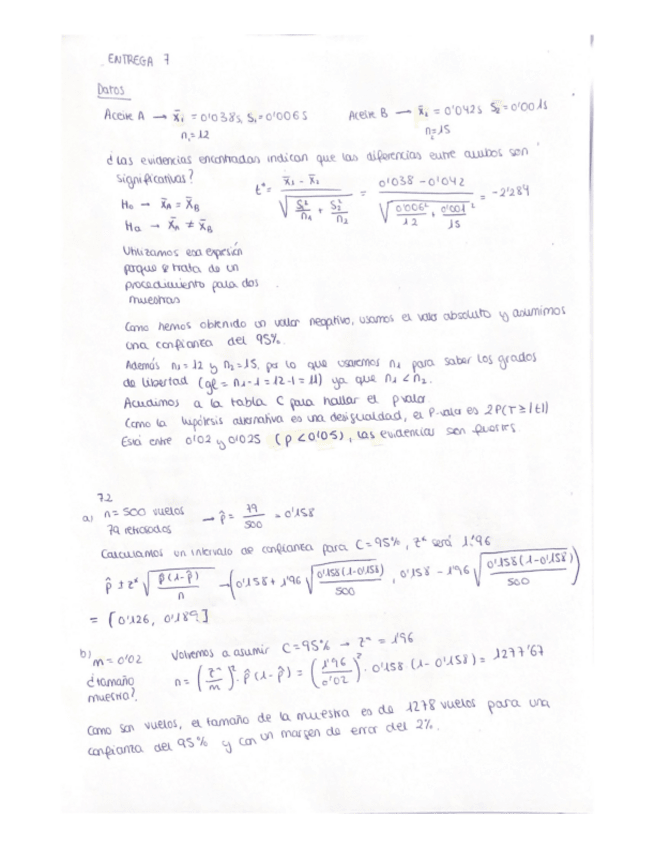 ENTREGA 7
Datos
Aceite A → x̄₁ = 0'038s, S₁ = 0'006 s    Aceite B → x̄₂ = 0'042s S₂ = 0'001s
n₁ = 12    n₂ = 15
¿Las evidencias encontradas indican que las diferencias entre ambos son
significativas?
t* = (x̄₁ - x̄₂) / √(S₁²/n₁ + S₂²/n₂) = (0'038 - 0'042) / √(0'006²/12 + 0'001²/15) = -2'284
H₀ → x̄A = x̄B
Ha → x̄A ≠ x̄B
Utilizamos esa expresión
porque se trata de un
procedimiento para dos
muestras
Como hemos obtenido un valor negativo, usamos el valor absoluto y asumimos
una confianza del 95%.
Además n₁ = 12 y n₂ = 15, por lo que usaremos n₁ para saber los grados
de libertad (gl = n₁ - 1 = 12 - 1 = 11) ya que n₁ < n₂.
Acudimos a la tabla C para hallar el pvalor
Como la hipótesis alternativa es una desigualdad, el P-valor es 2P(T ≥ |t|)
Está entre 0'02 y 0'025 (p < 0'05), las evidencias son fuertes
7.2
a) n = 500 vuelos → p̂ = 79/500 = 0'158
79 retrasados
Calculamos un intervalo de confianza para C = 95%, z* será 1'96
p̂ ± z* √(p̂(1-p̂)/n) → (0'158 + 1'96 √(0'158(1-0'158)/500), 0'158 - 1'96 √(0'158(1-0'158)/500))
= [0'126, 0'189]
b) m = 0'02    Volvemos a asumir C = 95% → z* = 1'96
¿tamaño muestra?    n = (z*/m)² · p̂(1-p̂) = (1'96/0'02)² · 0'158 (1 - 0'158) = 1277'67
Como son vuelos, el tamaño de la muestra es de 1278 vuelos para una
confianza del 95% y con un margen de error del 2%.